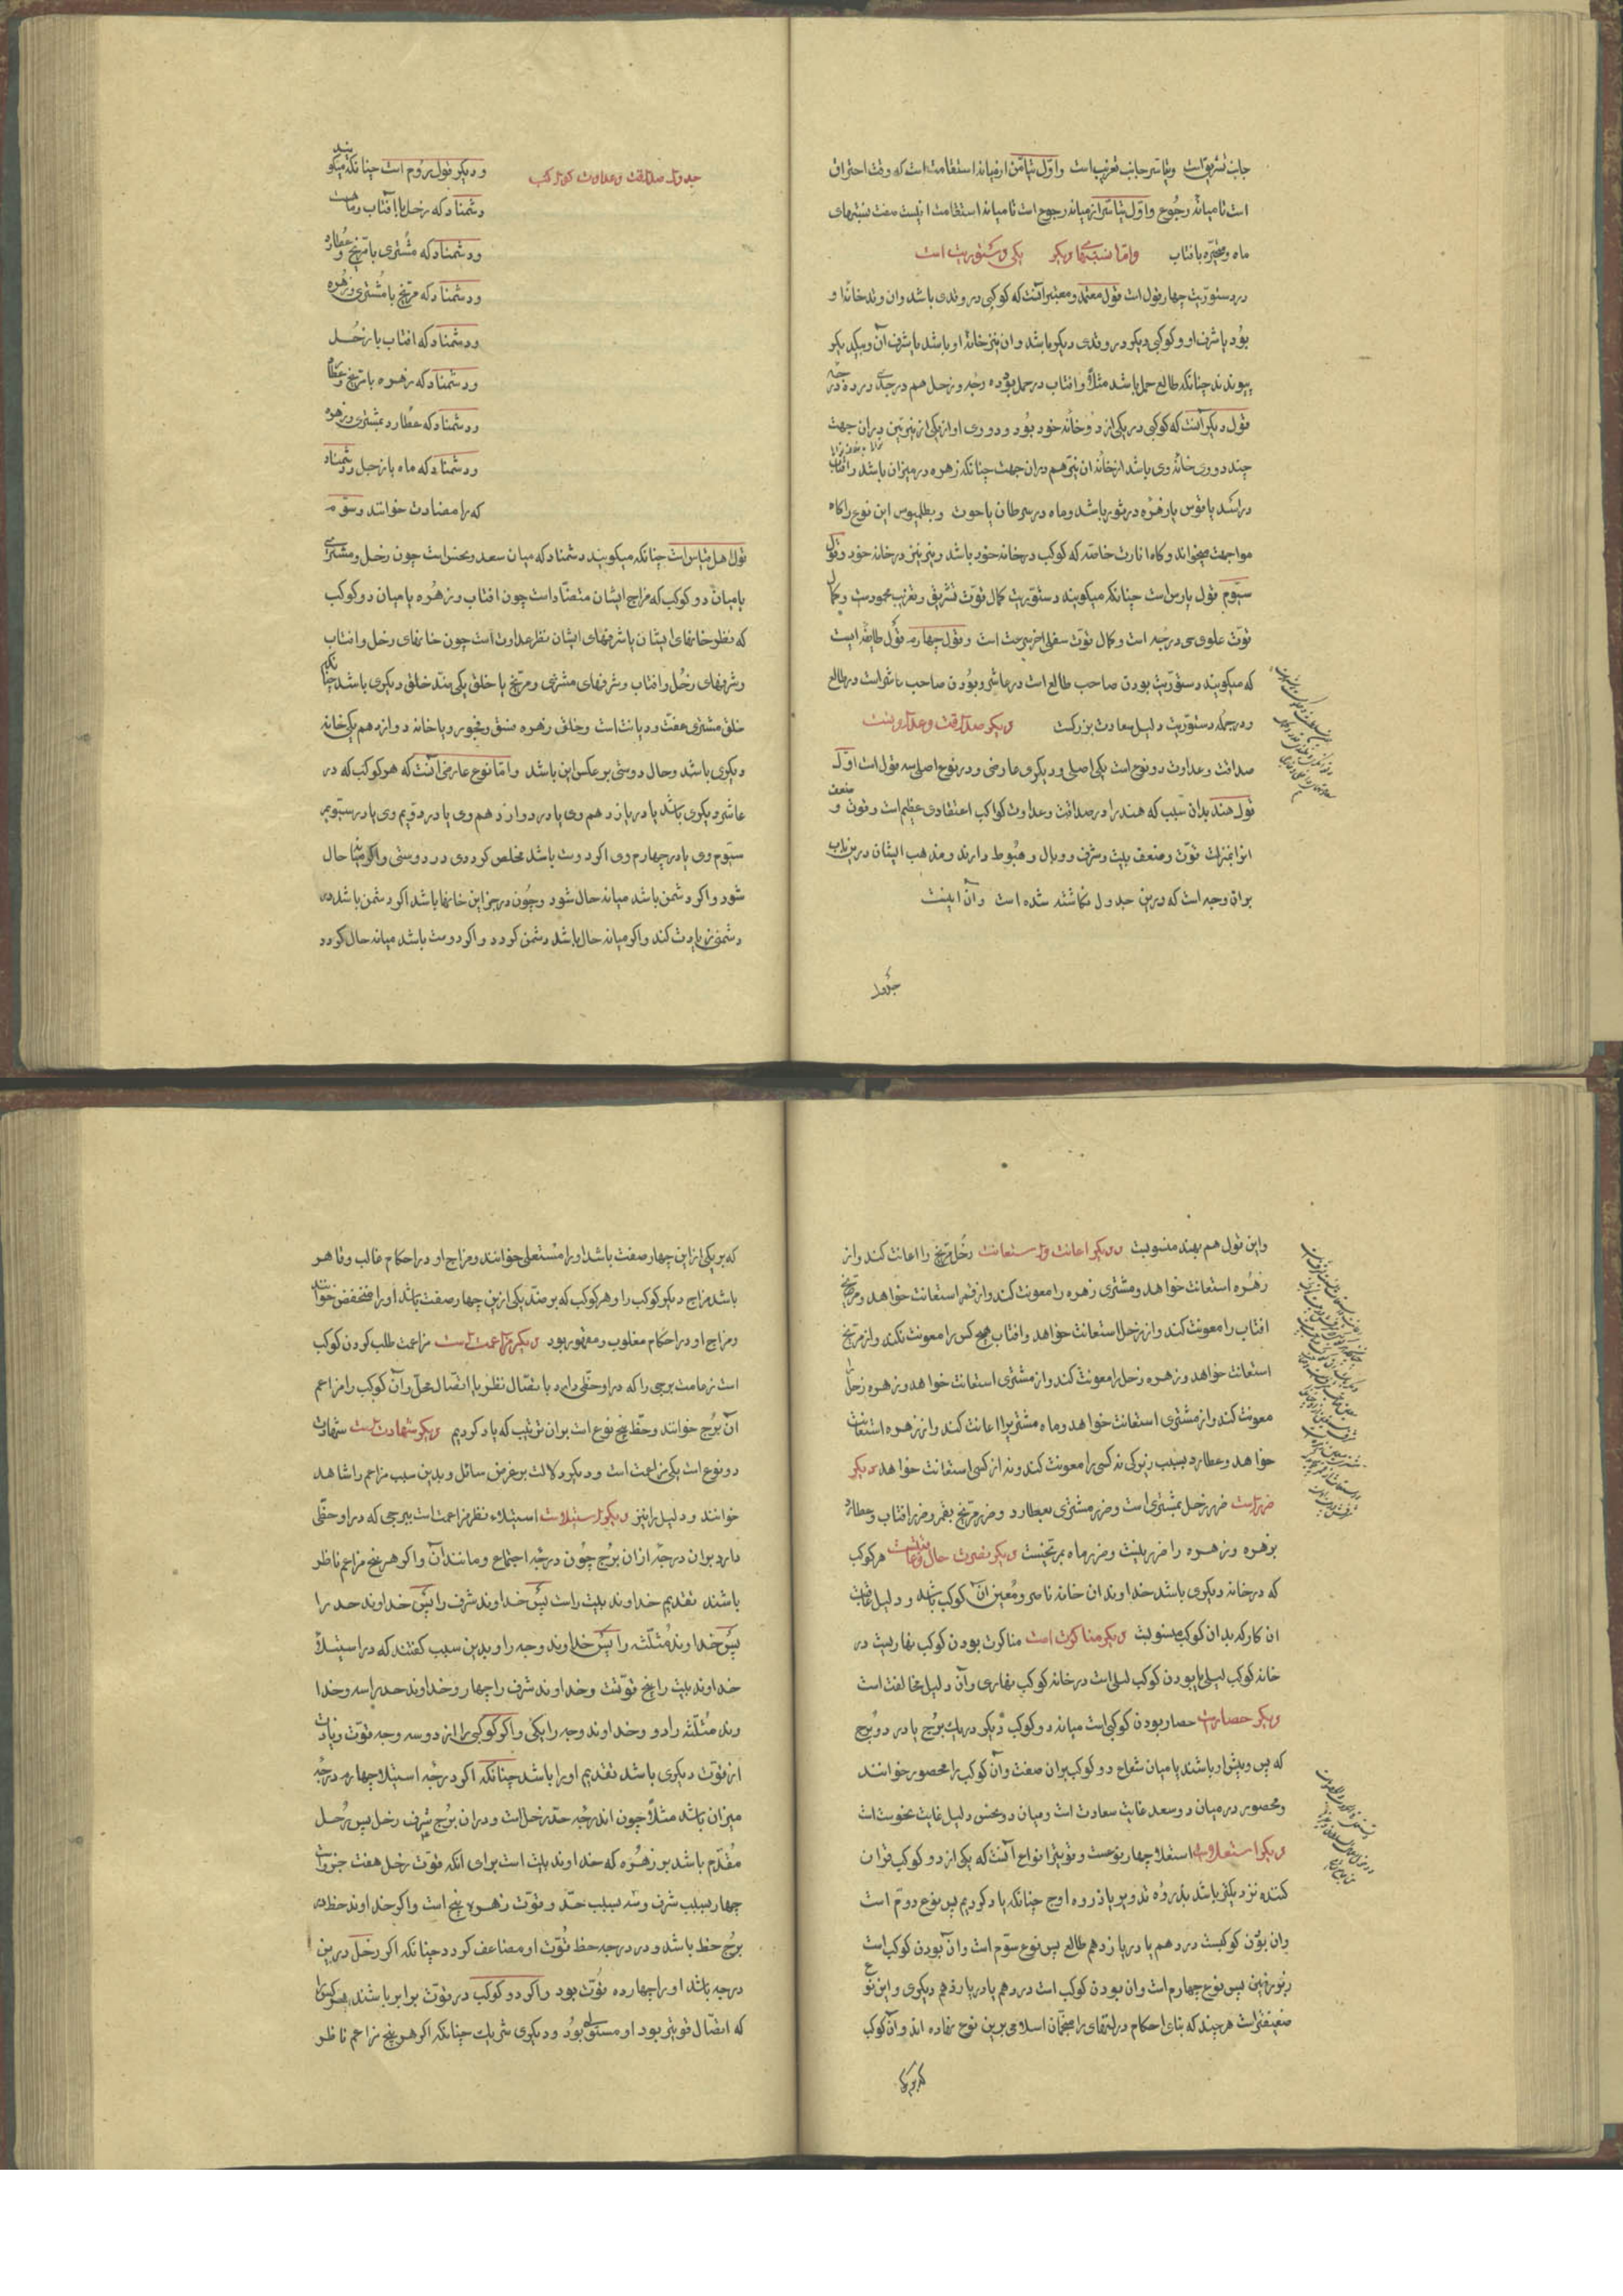 جانب تشریق است و تیاسر جانب تغریب است و اول تیامن از میانه استقامت است که وقت احتراق
است تا میانهٔ رجوع و اول تیاسر از میانه رجوع است تا میانه استقامت اینست صفت نسبتهای
ماه و متحیره بافتاب واما نسبتهاء دیکر یکی دستوریت است
در دستوریت چهار قول است قول معتمد و معتبر آنست که کوکبی در وتدی باشد وان وتد خانهٔ او
بود یا شرف او و کوکبی دیکر در وتدی دیکر باشد وان نیز خانهٔ او باشد یا شرف آن و بیکدیکر
پیوندند چنانکه طالع حمل باشد مثلا وافتاب در حمل بود ده درجه و زحل هم در جدی در ده درجه
قول دیکر آنست که کوکبی در یکی از دو خانهٔ خود بود و دوری او از یکی از نیرین بران جهت
چند دوری خانهٔ وی باشد از خانهٔ ان نیر هم بران جهت چنانکه زهره در میزان باشد وافتاب
در اسد یا قوس یا زهره در ثور باشد و ماه در سرطان یا حوت و بطلمیوس این نوع را کاه
مواجهت میخواند و کاه انارت خاصه که کوکب در خانه خود باشد و نیر نیز در خانه خود و قول
سیوم قول پارس است چنانکه میکویند دستوریت کمال قوت تشریق و تغریب محمودست و کمال
قوت علوی سی درجه است و کمال قوت سفلی اخر سرعت است و قول چهارم قول طایفه ایست
که میکویند دستوریت بودن صاحب طالع است در عاشر و بودن صاحب عاشر است در طالع
و در جمله دستوریت دلیل سعادت بزرکست دیکر صداقت وعداوتست
صداقت و عداوت دو نوع است یکی اصلی و دیکری عارضی و در نوع اصلی سه قول است اول
قول هند بدان سبب که هند را در صداقت و عداوت کواکب اعتقادی عظیم است و قوت و ضعف
انرا بمنزلت قوت و ضعف بیت و شرف و وبال و هبوط دارند و مذهب ایشان درین باب
بران وجه است که درین جدول نکاشته شده است وآن اینست
جدول
جدول صداقت وعداوت کواکب
و دیکر قول روم است چنانکه میکویند
دشمناد که زحل با افتاب و ماهست
و دشمناد که مشتری با مریخ و عطارد
و دشمناد که مریخ با مشتری و زهره
و دشمناد که افتاب با زحل
و دشمناد که زهره با مریخ و عطارد
و دشمناد که عطارد بمشتری و زهره
و دشمناد که ماه با زحل و دشمناد
که را مضادت خوانند و سوم
قول اهل قیاس است چنانکه میکویند دشمناد که میان سعد و نحس است چون زحل و مشتری
یا میان دو کوکب که مزاج ایشان متضاد است چون افتاب و زهره یا میان دو کوکب
که نظر خانهای ایشان یا شرفهای ایشان نظر عداوت است چون خانهای زحل وافتاب
و شرفهای زحل وافتاب و شرفهای مشتری و مریخ یا خلق یکی ضد خلق دیکری باشد چنانکه
خلق مشتری عفت و دیانت است و خلق زهره فسق و فجور و یا خانه دوازدهم یکی خانه
دیکری باشد و حال دوستی بر عکس این باشد واما نوع عارضی آنست که هر کوکب که در
عاشر دیکری باشد یا در یازدهم وی یا در دوازدهم وی یا در دویم وی یا در سیویم
سیوم وی یا در چهارم وی اکر دوست باشد مخلص کردد در دوستی واکر میانه حال
شود واکر دشمن باشد میانه حال شود و چون در جز این خانها باشد اکر دشمن باشد در
دشمنی زیادت کند واکر میانه حال باشد دشمن کردد واکر دوست باشد میانه حال کردد
واین قول هم بهند منسوبست دیکر اعانت واستعانت زحل مریخ را اعانت کند واز
زهره استعانت خواهد و مشتری زهره را معونت کند واز قمر استعانت خواهد و مریخ
افتاب را معونت کند واز زحل استعانت خواهد وافتاب هیچ کس را معونت نکند واز مریخ
استعانت خواهد و زهره زحل را معونت کند واز مشتری استعانت خواهد و زهره زحل را
معونت کند واز مشتری استعانت خواهد و ماه مشتریرا اعانت کند واز زهره استعانت
خواهد و عطارد بسبب زیرکی نه کسی را معونت کند و نه از کسی استعانت خواهد دیکر
ضررست ضرر زحل بمشتری است و ضرر مشتری بعطارد و ضرر مریخ بقمر و ضرر افتاب و عطارد
بزهره و زهره را ضرر نیست و ضرر ماه بمریخست دیکر نصرت حال وعاقبتست هر کوکب
که در خانه دیکری باشد خداوند ان خانه ناصر و معین ان کوکب باشد و دلیل عاقبت
ان کار که بدان کوکب منسوبست دیکر مناکرت است مناکرت بودن کوکب نهاریست در
خانه کوکب لیلی یا بودن کوکب لیلی است در خانه کوکب نهاری وآن دلیل مخالفت است
دیکر حصارست حصار بودن کوکبی است میانه دو کوکب دیکر در یک برج یا در دو برج
که پس و پیش او باشند یا میان شعاع دو کوکب بران صفت وآن کوکب را محصور خوانند
و محصور در میان دو سعد غایت سعادت است و میان دو نحس دلیل غایت نحوست است
دیکر استعلاست استعلا چهار نوعست و قویترین انواع آنست که یکی از دو کوکب قران
کننده نزدیکتر باشد بذروه تدویر یا ذروه اوج چنانکه یاد کردیم پس نوع دوم است
وان بودن کوکبست در دهم یا در یازدهم طالع پس نوع سوم است وان بودن کوکب است
زبر زمین پس نوع چهارم است وان بودن کوکب است در دهم یا در یازدهم دیکری واین نوع
ضعیفترست هر چند که بنای احکام در انتهای را منجمان اسلامی برین نوع نهاده اند وآن کوکب
که بر یکی
که بر یکی ازین چهار صفت باشد اورا مستعلی خوانند و مزاج او در احکام غالب و قاهر
باشد مزاج دیکر کوکب را و هر کوکب که بر ضد یکی ازین چهار صفت باشد اورا منخفض خوانند
و مزاج او در احکام مغلوب و مقهور بود دیکر مزاعمت است مزاعمت طلب کردن کوکب
است زعامت برجی را که در او حظی دارد باتصال نظر یا اتصال محل وآن کوکب را مزاعم
آن برج خوانند و حظ پنج نوع است بران ترتیب که یاد کردیم دیکر شهادت است شهادت
دو نوع است یکی مزاعمت است و دیکر دلالت بر غرض سائل و بدین سبب مزاعم را شاهد
خوانند و دلیل را نیز دیکر استیلاست استیلاء نظر مزاعمت است ببرجی که در او حظی
دارد بران درجه از ان برج چون درجه اجتماع و مانند آن واکر هر پنج مزاعم ناظر
باشند تقدیم خداوند بیت راست پس خداوند شرف را پس خداوند حد را
پس خداوند مثلثه را پس خداوند وجه را و بدین سبب کفتند که در استیلا
خداوند بیت را پنج قوتست و خداوند شرف را چهار و خداوند حد را سه و خدا
وند مثلثه را دو و خداوند وجه را یکی واکر کوکبی را از دو سه وجه قوت زیادت
از قوت دیکری باشد تقدیم اورا باشد چنانکه اکر درجه استیلا چهارم درجه
میزان باشد مثلا چون اندرجه حد زحل است و در ان برج شرف زحل پس زحل
مقدم باشد بر زهره که خداوند بیت است برای انکه قوت زحل هفت جزوست
چهار بسبب شرف و سه بسبب حد و قوت زهره پنج است واکر خداوند حظ در
برج حظ باشد و در درجه حظ قوت او مضاعف کردد چنانکه اکر زحل درین
درجه باشد اورا چهارده قوت بود واکر دو کوکب در قوت برابر باشند هر کدام
که اتصال قویتر بود او مستولی بود و دیکری شریک چنانکه اکر هر پنج مزاعم ناظر